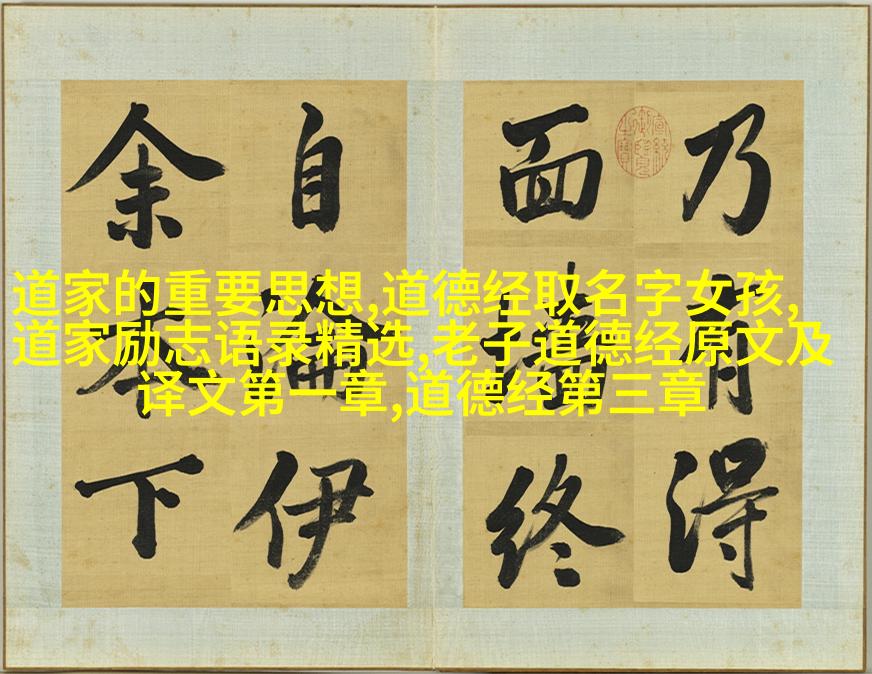 道家的重要思想,道德经取名字女孩,
道家励志语录精选,老子道德经原文及
译文第一章,道德经第三章
乃有得
面墻終
自伊
余本下